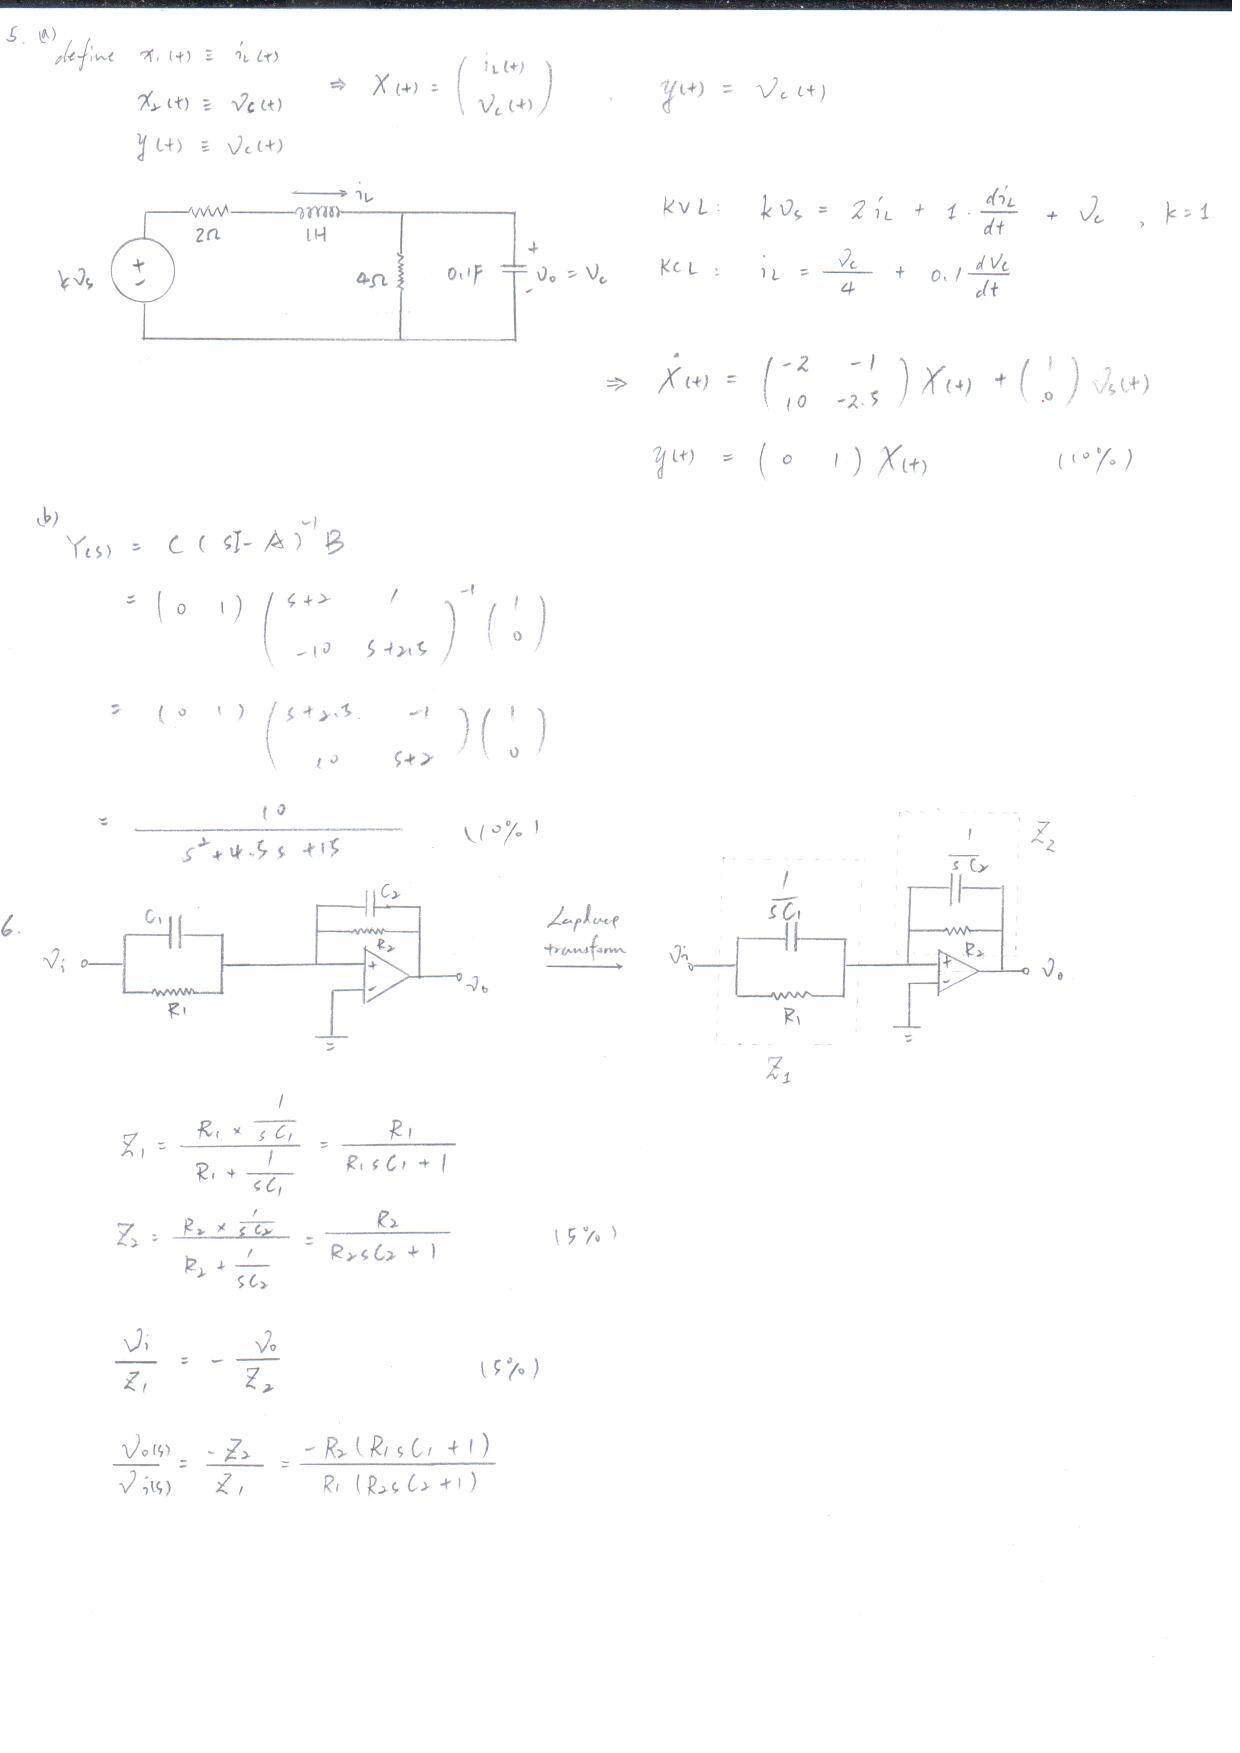 5. (a)
define x₁(t) ≡ i_L(t)
x₂(t) ≡ v_c(t)
y(t) ≡ v_c(t)
⇒ X(t) = ( i_L(t) ; v_c(t) ) , y(t) = v_c(t)
i_L
2Ω 1H
kv_s + - 4Ω 0.1F + v₀ = v_c -
KVL: k v_s = 2 i_L + 1 · di_L/dt + v_c , k=1
KCL: i_L = v_c/4 + 0.1 dv_c/dt
⇒ Ẋ(t) = ( -2 -1 ; 10 -2.5 ) X(t) + ( 1 ; 0 ) v_s(t)
y(t) = ( 0 1 ) X(t) (10%)
(b)
Y(s) = C ( sI - A )⁻¹ B
= ( 0 1 ) ( s+2 1 ; -10 s+2.5 )⁻¹ ( 1 ; 0 )
= ( 0 1 ) ( s+2.5 -1 ; 10 s+2 ) ( 1 ; 0 )
= 10 / (s²+4.5s+15) (10%)
6.
C₁ C₂
R₂
V_i + - V₀
R₁
Laplace
transform
1/sC₁ 1/sC₂ Z₂
R₂
V_i + - V₀
R₁
Z₁
Z₁ = (R₁ × 1/sC₁) / (R₁ + 1/sC₁) = R₁ / (R₁sC₁ + 1)
Z₂ = (R₂ × 1/sC₂) / (R₂ + 1/sC₂) = R₂ / (R₂sC₂ + 1) (5%)
V_i/Z₁ = - V₀/Z₂ (5%)
V₀(s)/V_i(s) = -Z₂/Z₁ = -R₂(R₁sC₁ + 1) / R₁(R₂sC₂+1)